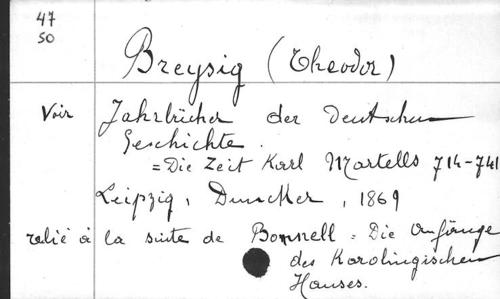 47
50
Breysig (Theodor)
Voir Jahrbücher der Deutschen
Geschichte.
=Die Zeit Karl Martells 714-741
Leipzig, Duncker, 1869
relié à la suite de Bonnell = Die Anfänge
des Karolingischen
Hauses.